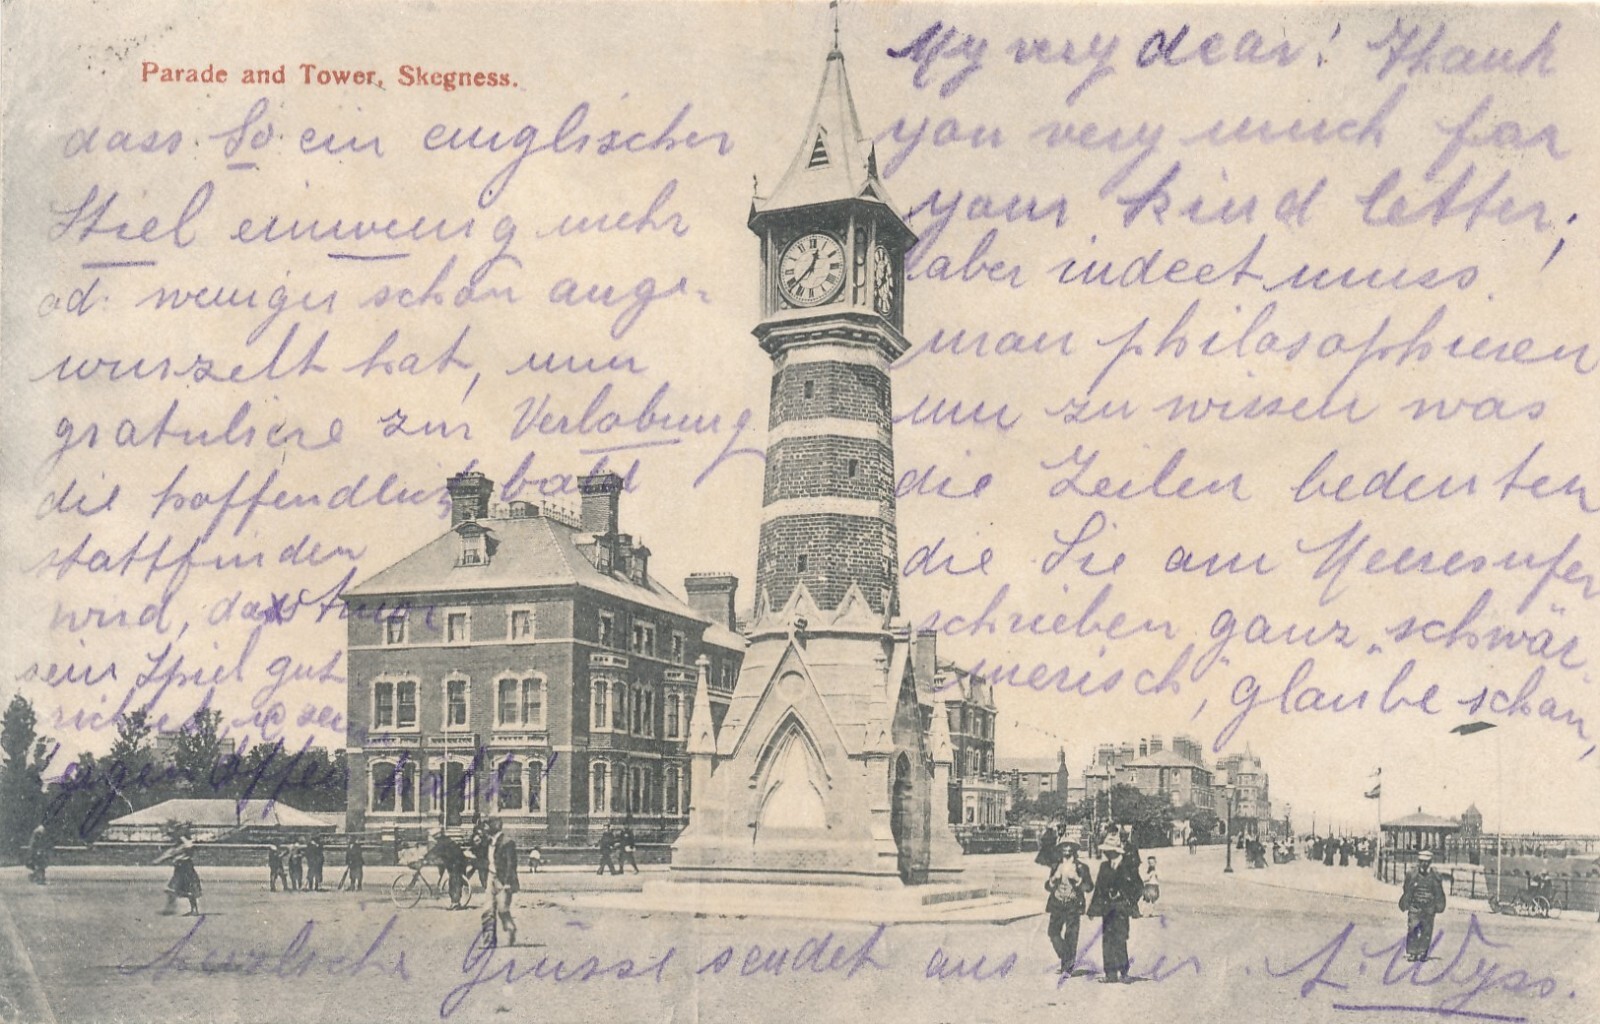 Parade and Tower, Skegness.
My very dear! Thank
you very much for
your kind letter;
aber indeet muss!
man philosophieren
um zu wissen was
die Zeilen bedeuten
die Sie am Meeresufer
schrieben ganz „schwär
merisch", glaube schon,
dass So ein englischer
Stiel einwenig mehr
od. weniger schon ange-
wurzelt hat, nun
gratuliere zur Verlobung
die hoffendlich bald
stattfinden
wird, dass Amor
sein Spiel gut
richtet,
gegen offen halt!
herzliche Grüsse sendet aus hier. A. Wyss.